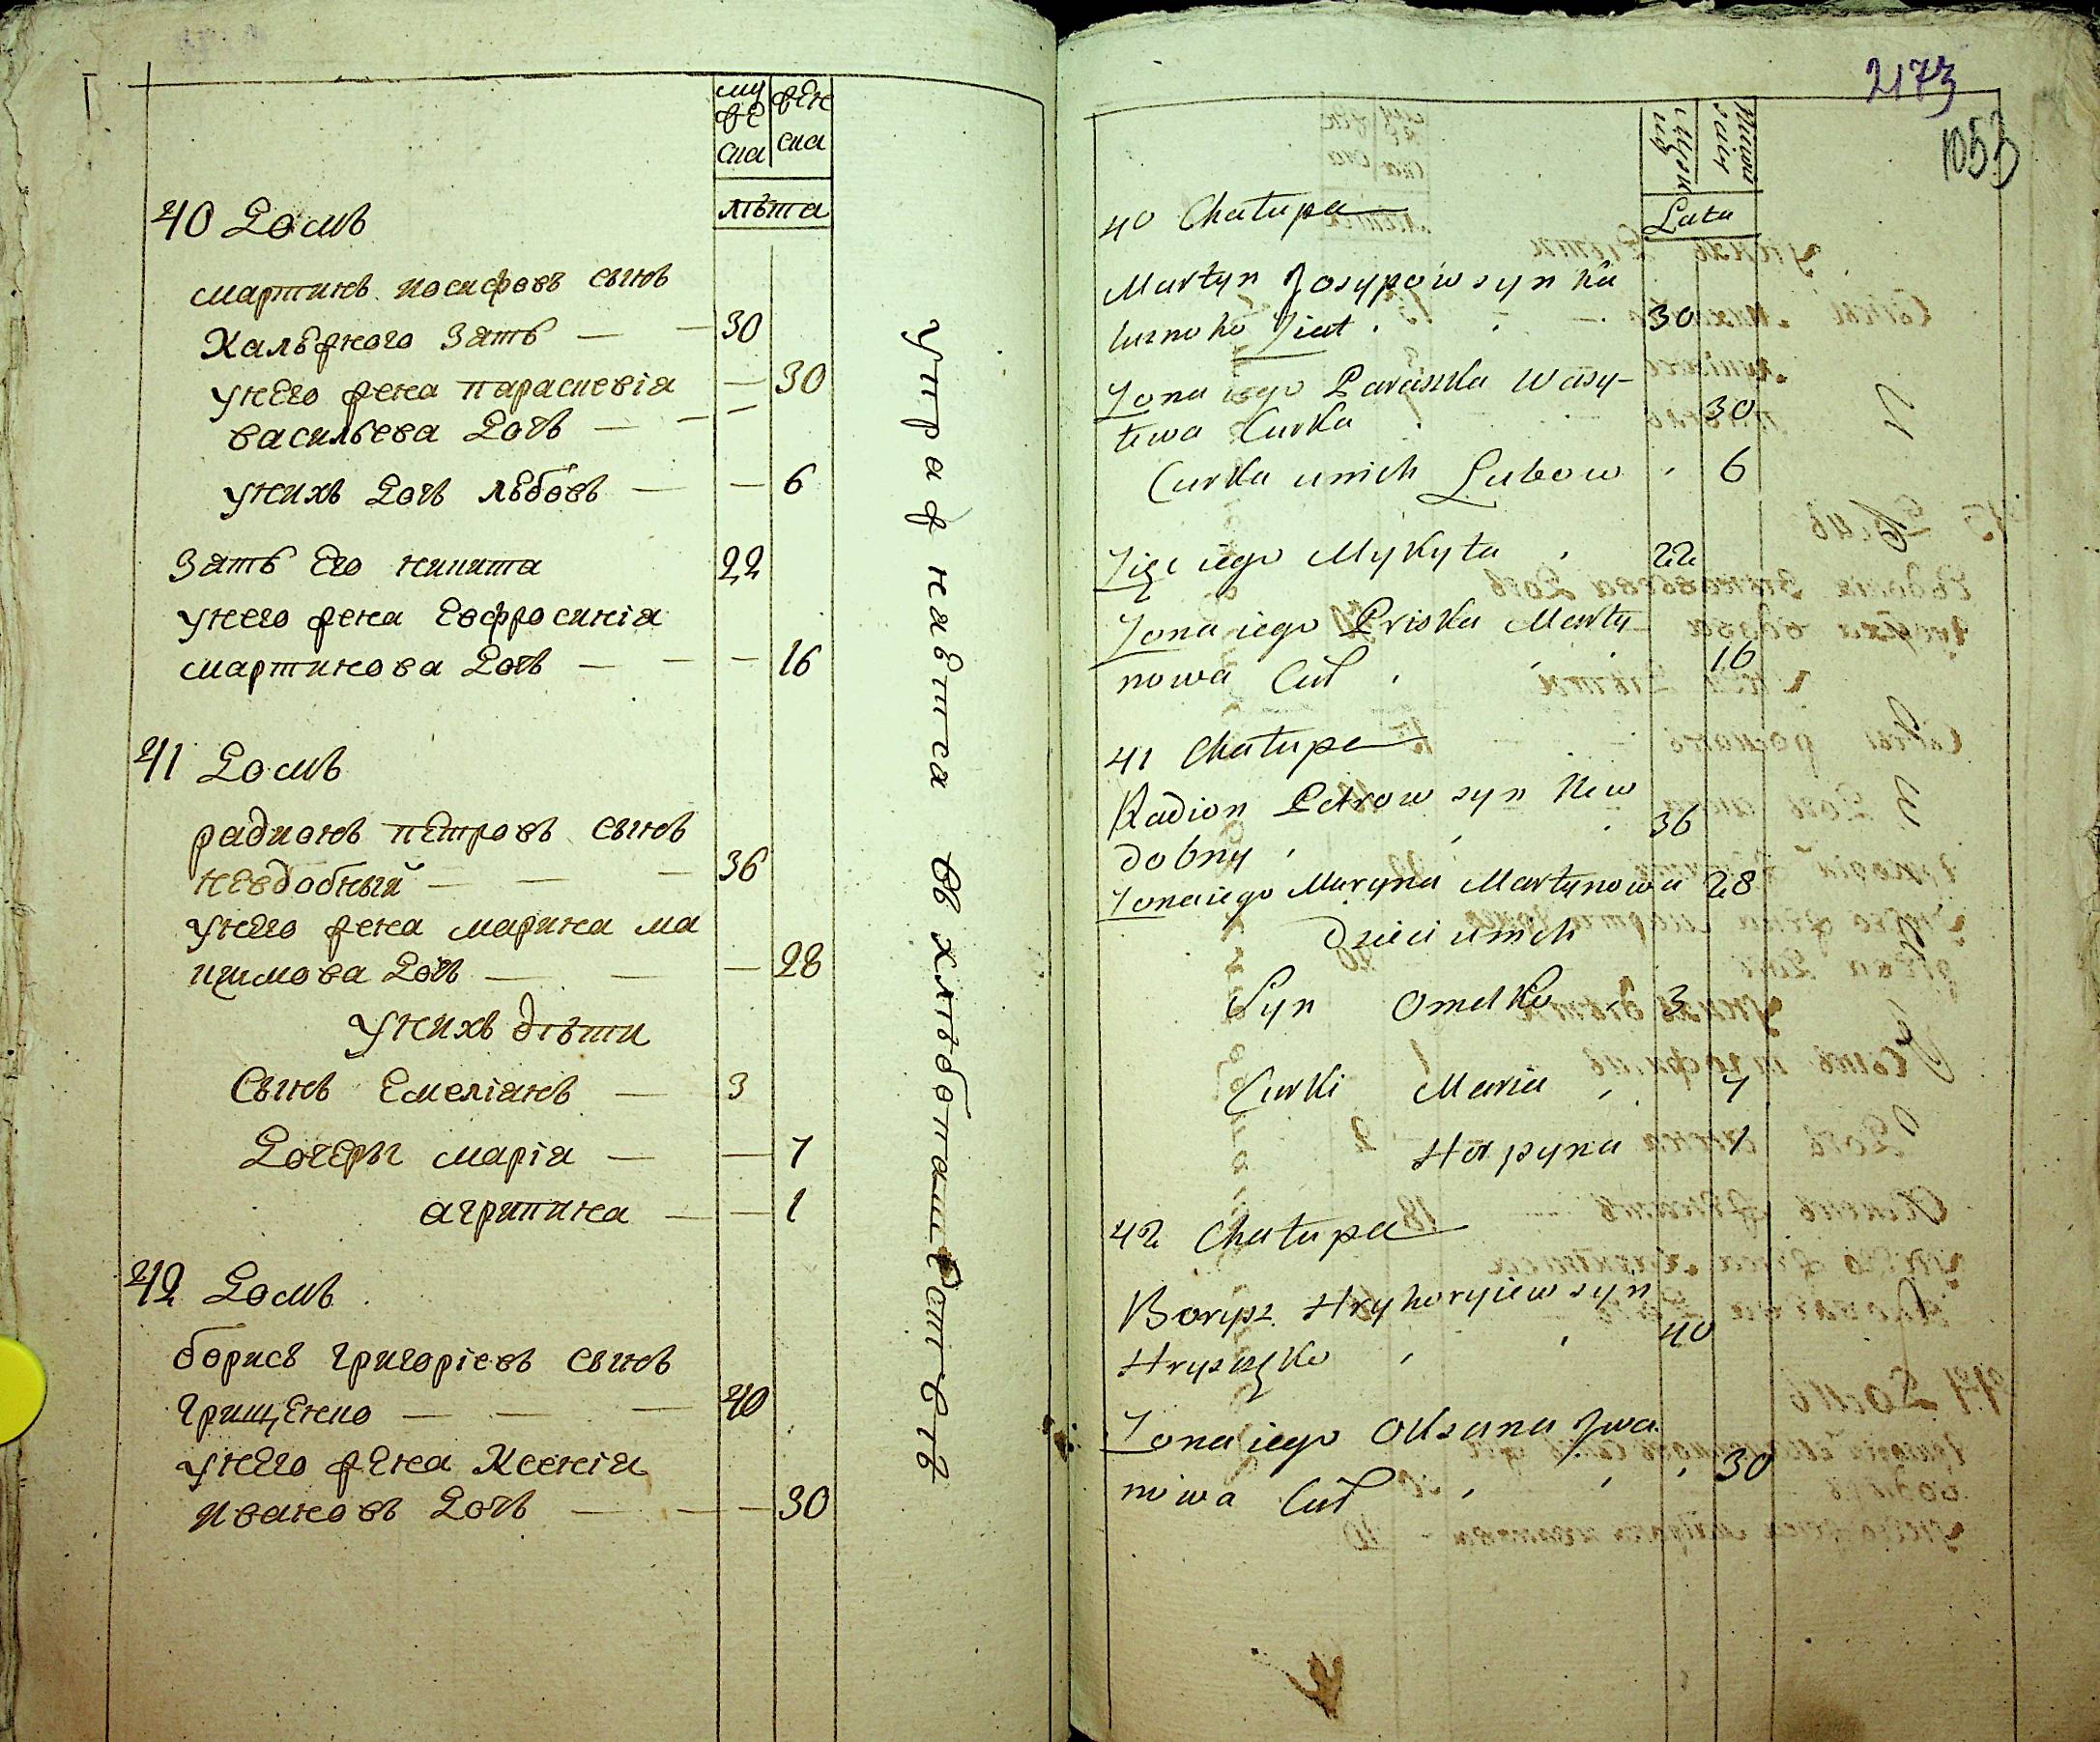 му
же
ска
жен
ска
лѣта
40 Домъ
мартинъ иосифовъ сынъ
Халѣрного Зять — — 30
унего жена параскевіа — 30
васильева Дочь — —
унихъ Дочь любовь — — 6
Зять Его никита 22
унего жена Евфросиніа
мартинова Дочь — — — 16
41 Домъ
радионъ петровъ сынъ
невдобный — — — 36
унего жена марина ма
ѯимова Дочь — — — 28
унихъ дѣти
Сынъ Емеліанъ — 3
Дочеры маріа — — 7
агрипина — — 1
42 Домъ
борисъ григоріевъ сынъ
грищенко — — — 40
унего жена Ксеніа
ивановъ Дочь — — — 30
упражняются въ хлѣбопашествѣ
2173
1053
Lata
40 Chałupa
Martyn Jozypow syn
Ziat 30
Zona iego Paraska Wasy-
lewa Curka 30
Curka unich Lubow 6
Zięc iego Mykyta 22
Zona iego Priska Marty
nowa Cur 16
41 Chałupa
Radion Petrow syn New
dobny 36
Zona iego Maryna Martynowa 28
Dzieci unich
Syn Omelko 3
Curki Maria 7
Harpyna 1
42 Chałupa
Borysz Hryhoryiew syn
40
Zona iego Oksana Jwa
nowa Cur 30